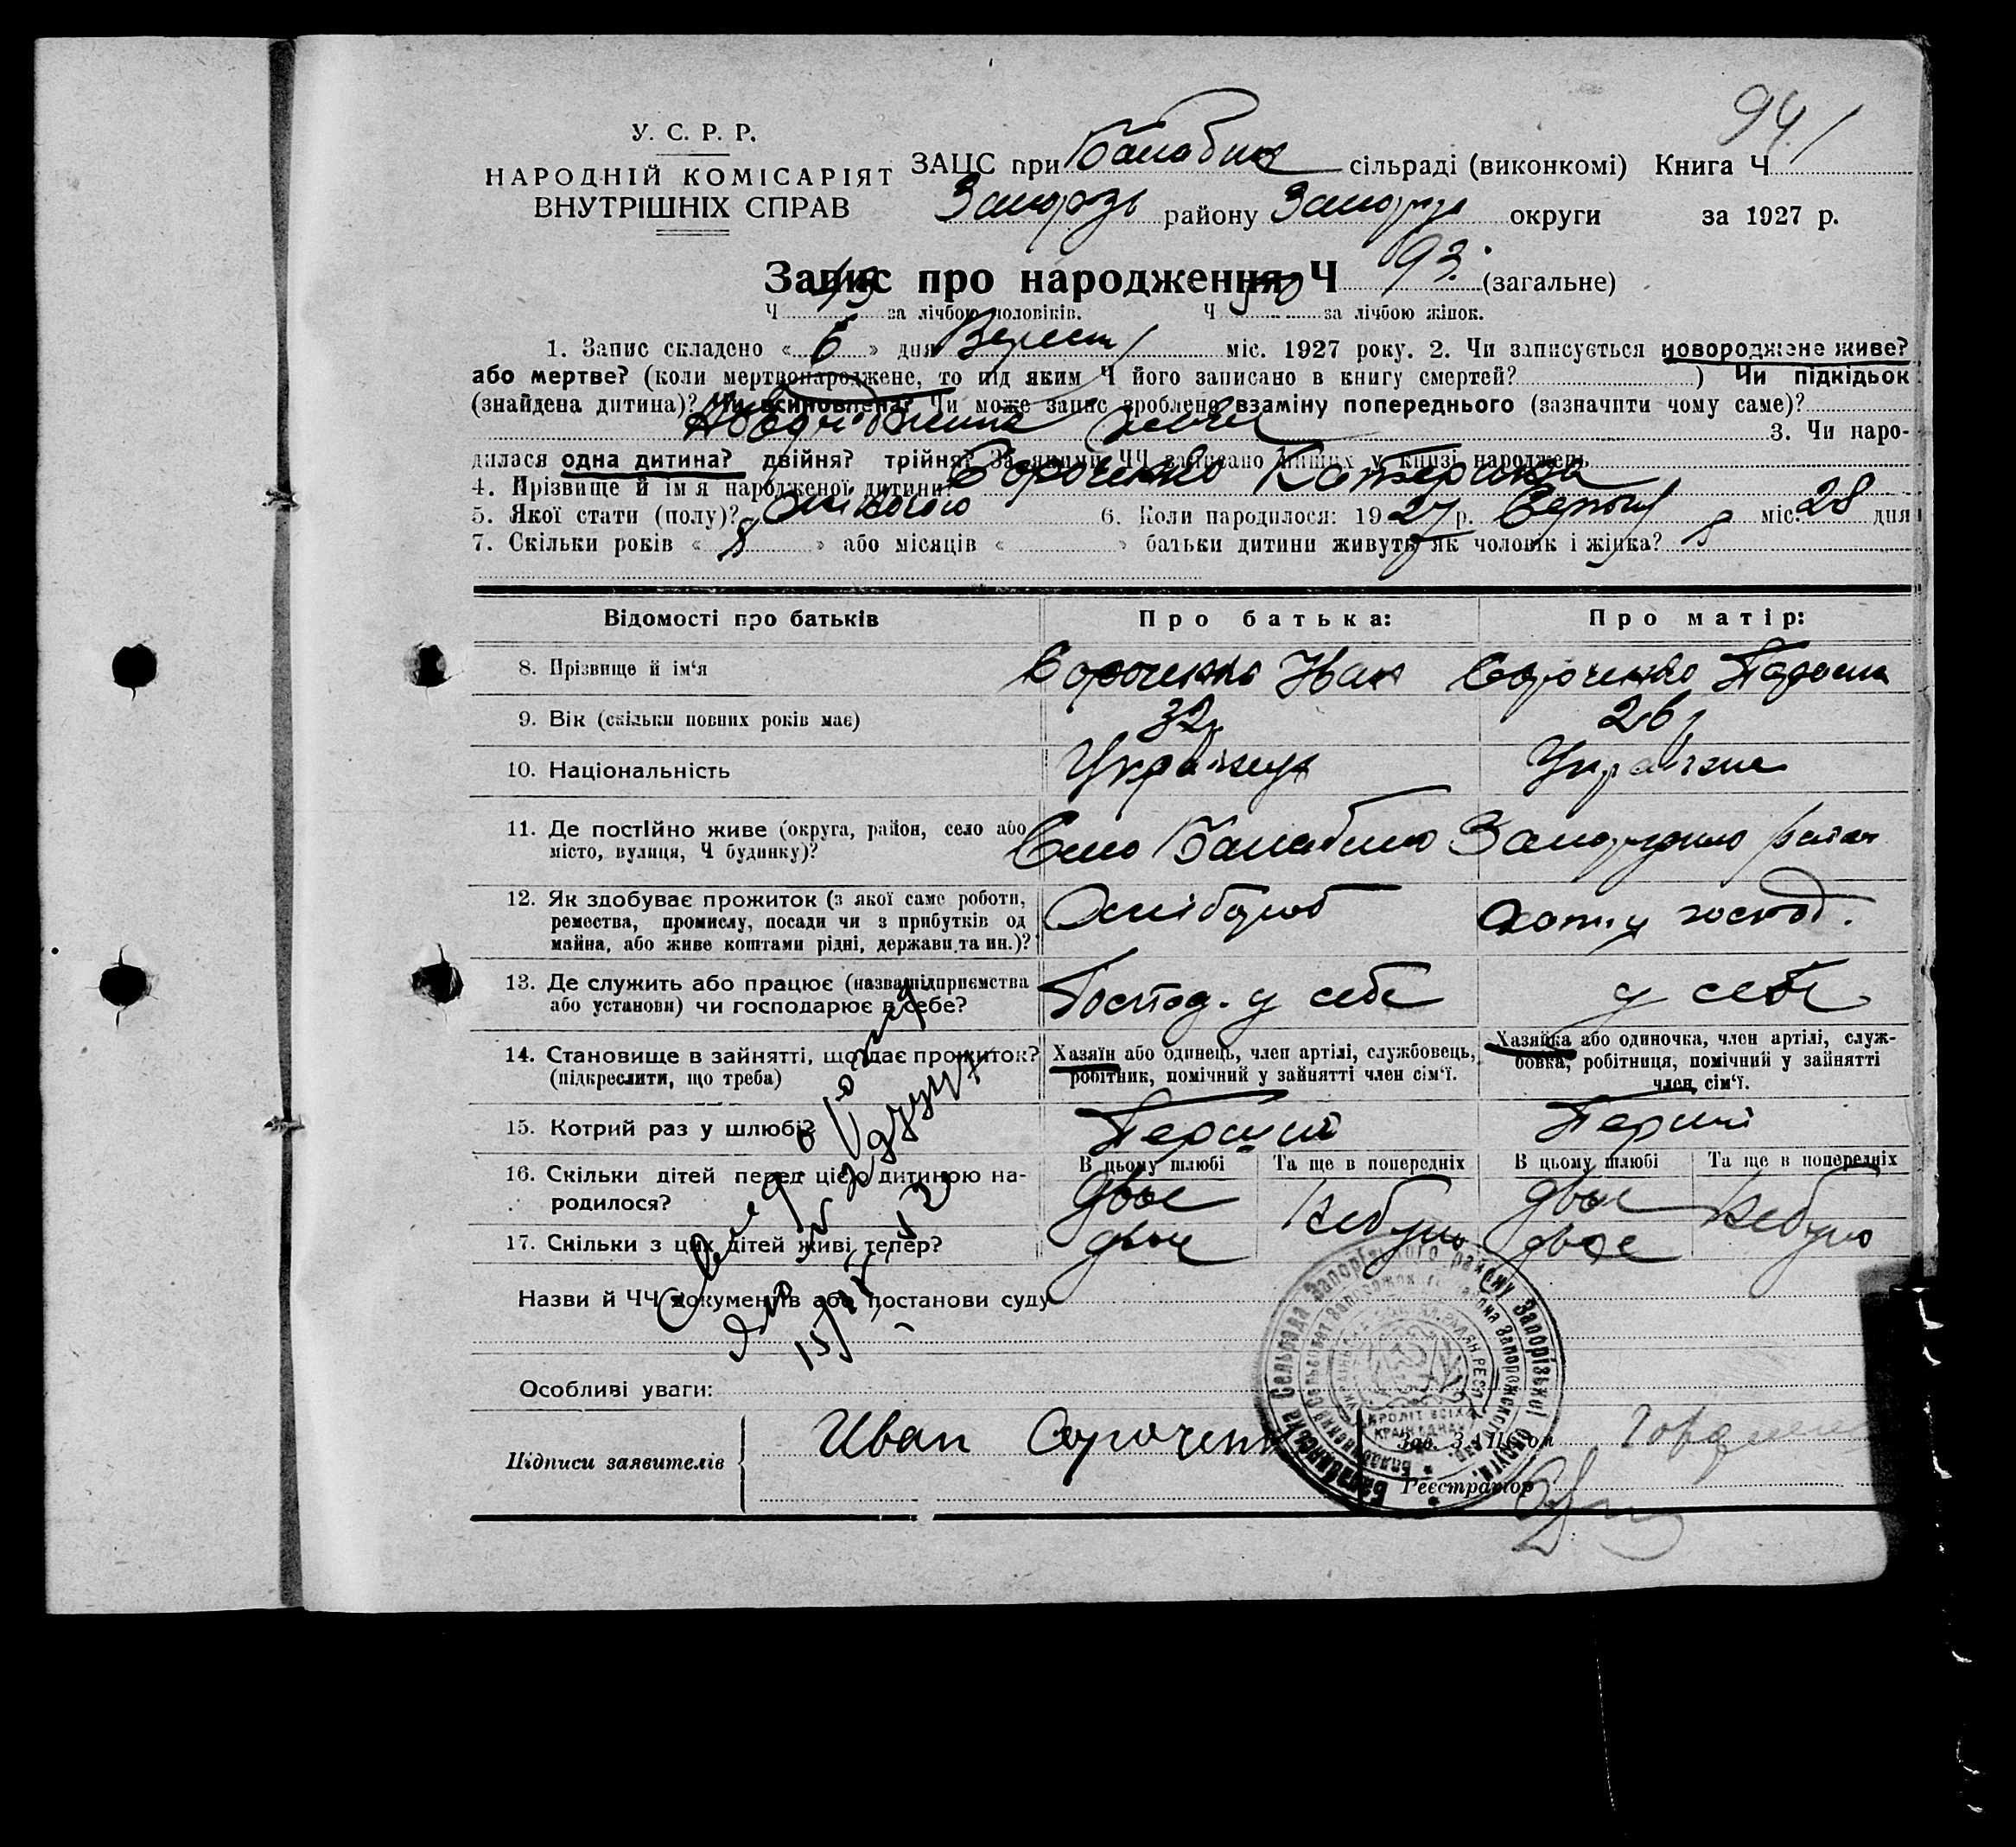 94
У. С. Р. Р.
НАРОДНІЙ КОМІСАРІЯТ
ВНУТРІШНІХ СПРАВ
ЗАЦС при Балабин сільраді (виконкомі) Книга Ч
Запорізь району Запоріз округи за 1927 р.
Запис про народження Ч 93. (загальне)
Ч 43 за лічбою чоловіків. Ч 50 за лічбою жінок.
1. Запис складено « 6 » дня Верес міс. 1927 року. 2. Чи записується новороджене живе?
або мертве? (коли мертвонароджене, то під яким Ч його записано в книгу смертей? ) Чи підкідьок
(знайдена дитина)? Чи всиновлена? Чи може запис зроблено взаміну попереднього (зазначити чому саме)?
3. Чи наро-
дилася одна дитина? двійня? трійня? За якими ЧЧ записано инших у книзі народжень
4. Прізвище й ім'я народженої дитини? Сороченко Катерина
5. Якої стати (полу)? Жіночого 6. Коли народилося: 1927 р. Серпня міс. 28 дня
7. Скільки років « 8 » або місяців « » батьки дитини живуть як чоловік і жінка? 8
Відомості про батьків Про батька: Про матір:
8. Прізвище й ім'я Сороченко Иван Сороченко Параска
9. Вік (скільки повних років має) 32 р 26 р
10. Національність Українец Українка
11. Де постійно живе (округа, район, село або Село Балабино Запорізького район
місто, вулиця, Ч будинку)?
12. Як здобуває прожиток (з якої саме роботи, Хлібороб Хатн. у господ.
ремества, промислу, посади чи з прибутків од
майна, або живе коштами рідні, держави та ин.)?
13. Де служить або працює (назва підприємства Господ. у себе у себе
або установи) чи господарює в себе?
14. Становище в зайнятті, що дає прожиток? Хазяїн або одинець, член артілі, службовець, Хазяйка або одиночка, член артілі, служ-
(підкреслити, що треба) робітник, помічний у зайнятті член сім'ї. бовка, робітниця, помічний у зайнятті
член сім'ї.
15. Котрий раз у шлюбі? Перший Перший
В цьому шлюбі Та ще в попередніх В цьому шлюбі Та ще в попередніх
16. Скільки дітей перед цією дитиною на- двоє небуло двоє небуло
родилося?
17. Скільки з цих дітей живі тепер? двоє двоє
Назви й ЧЧ документів або постанови суду
Особливі уваги:
Підписи заявителів Иван Сороченко Зав. ЗАЦС'ом
Реєстратор
Балабинська Сельрада Запорізького району Запорізької округи